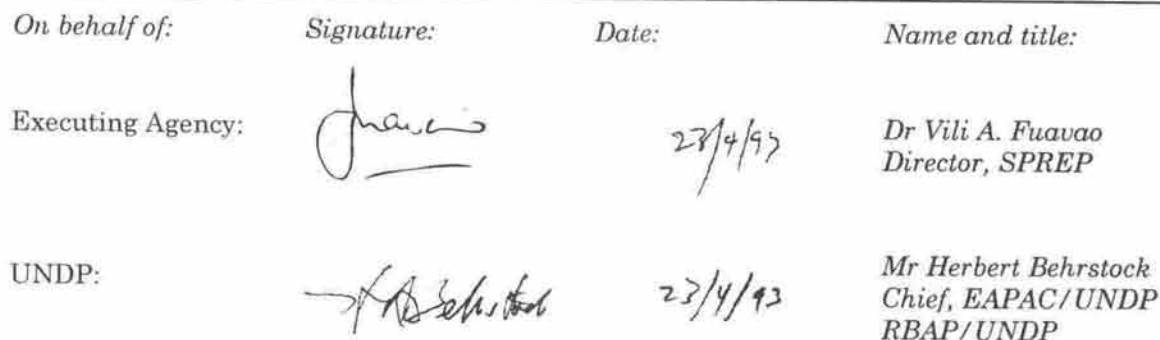 On behalf of: Signature: Date: Name and title:
Executing Agency: 23/4/93 Dr Vili A. Fuavao
Director, SPREP
UNDP: 23/4/93 Mr Herbert Behrstock
Chief, EAPAC/UNDP
RBAP/UNDP